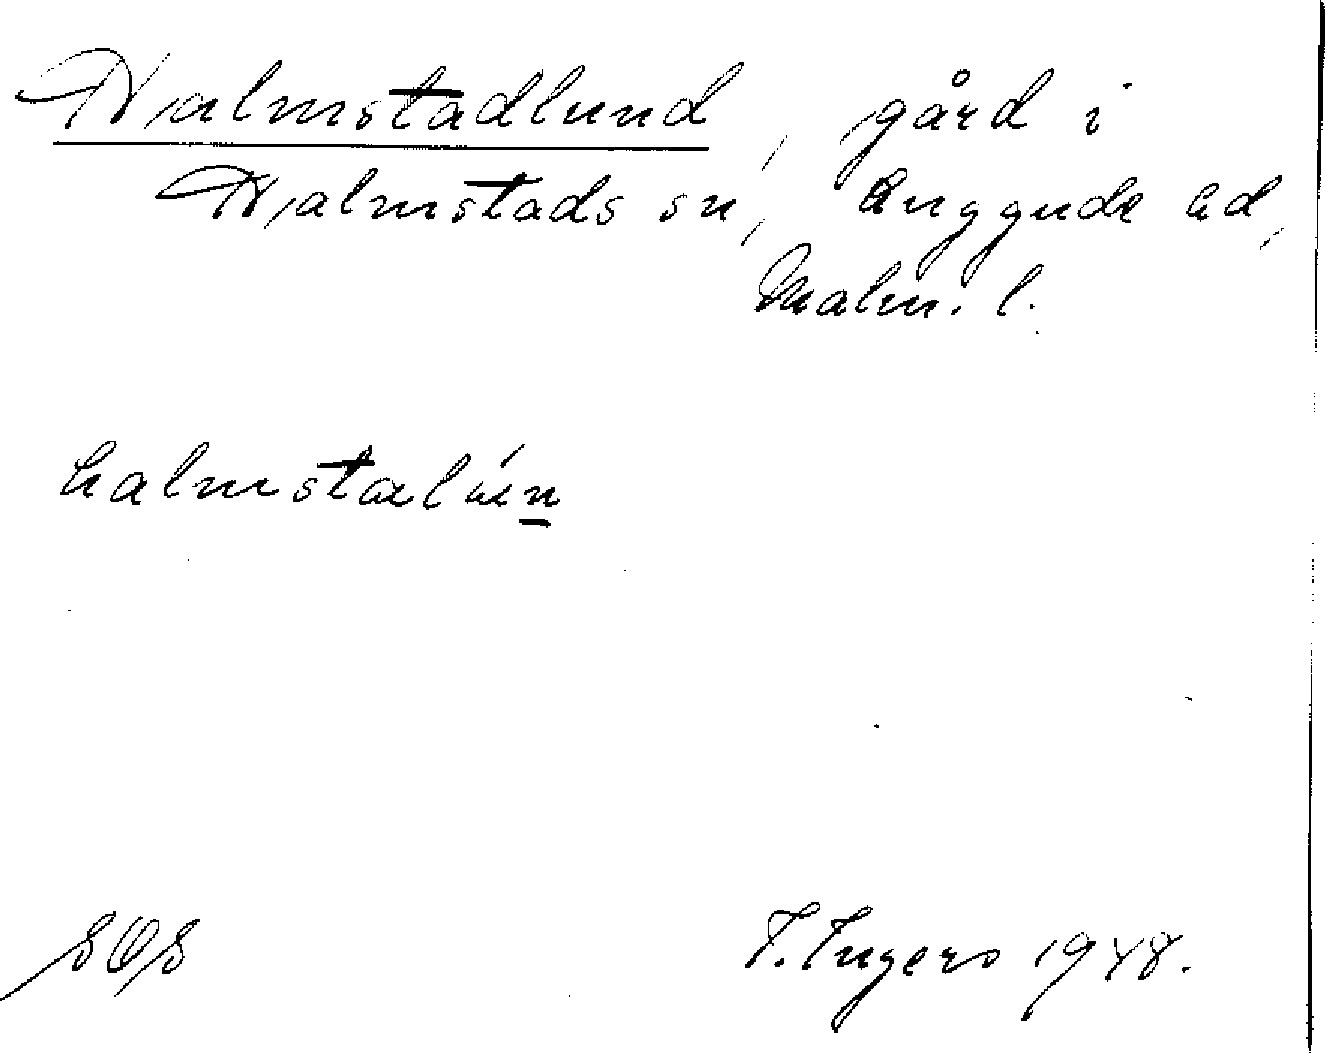 Halmstadlund, gård i
Halmstads sn, Luggude hd,
Malm. l.
halmstalún
SOS
I. Ingers 1948.